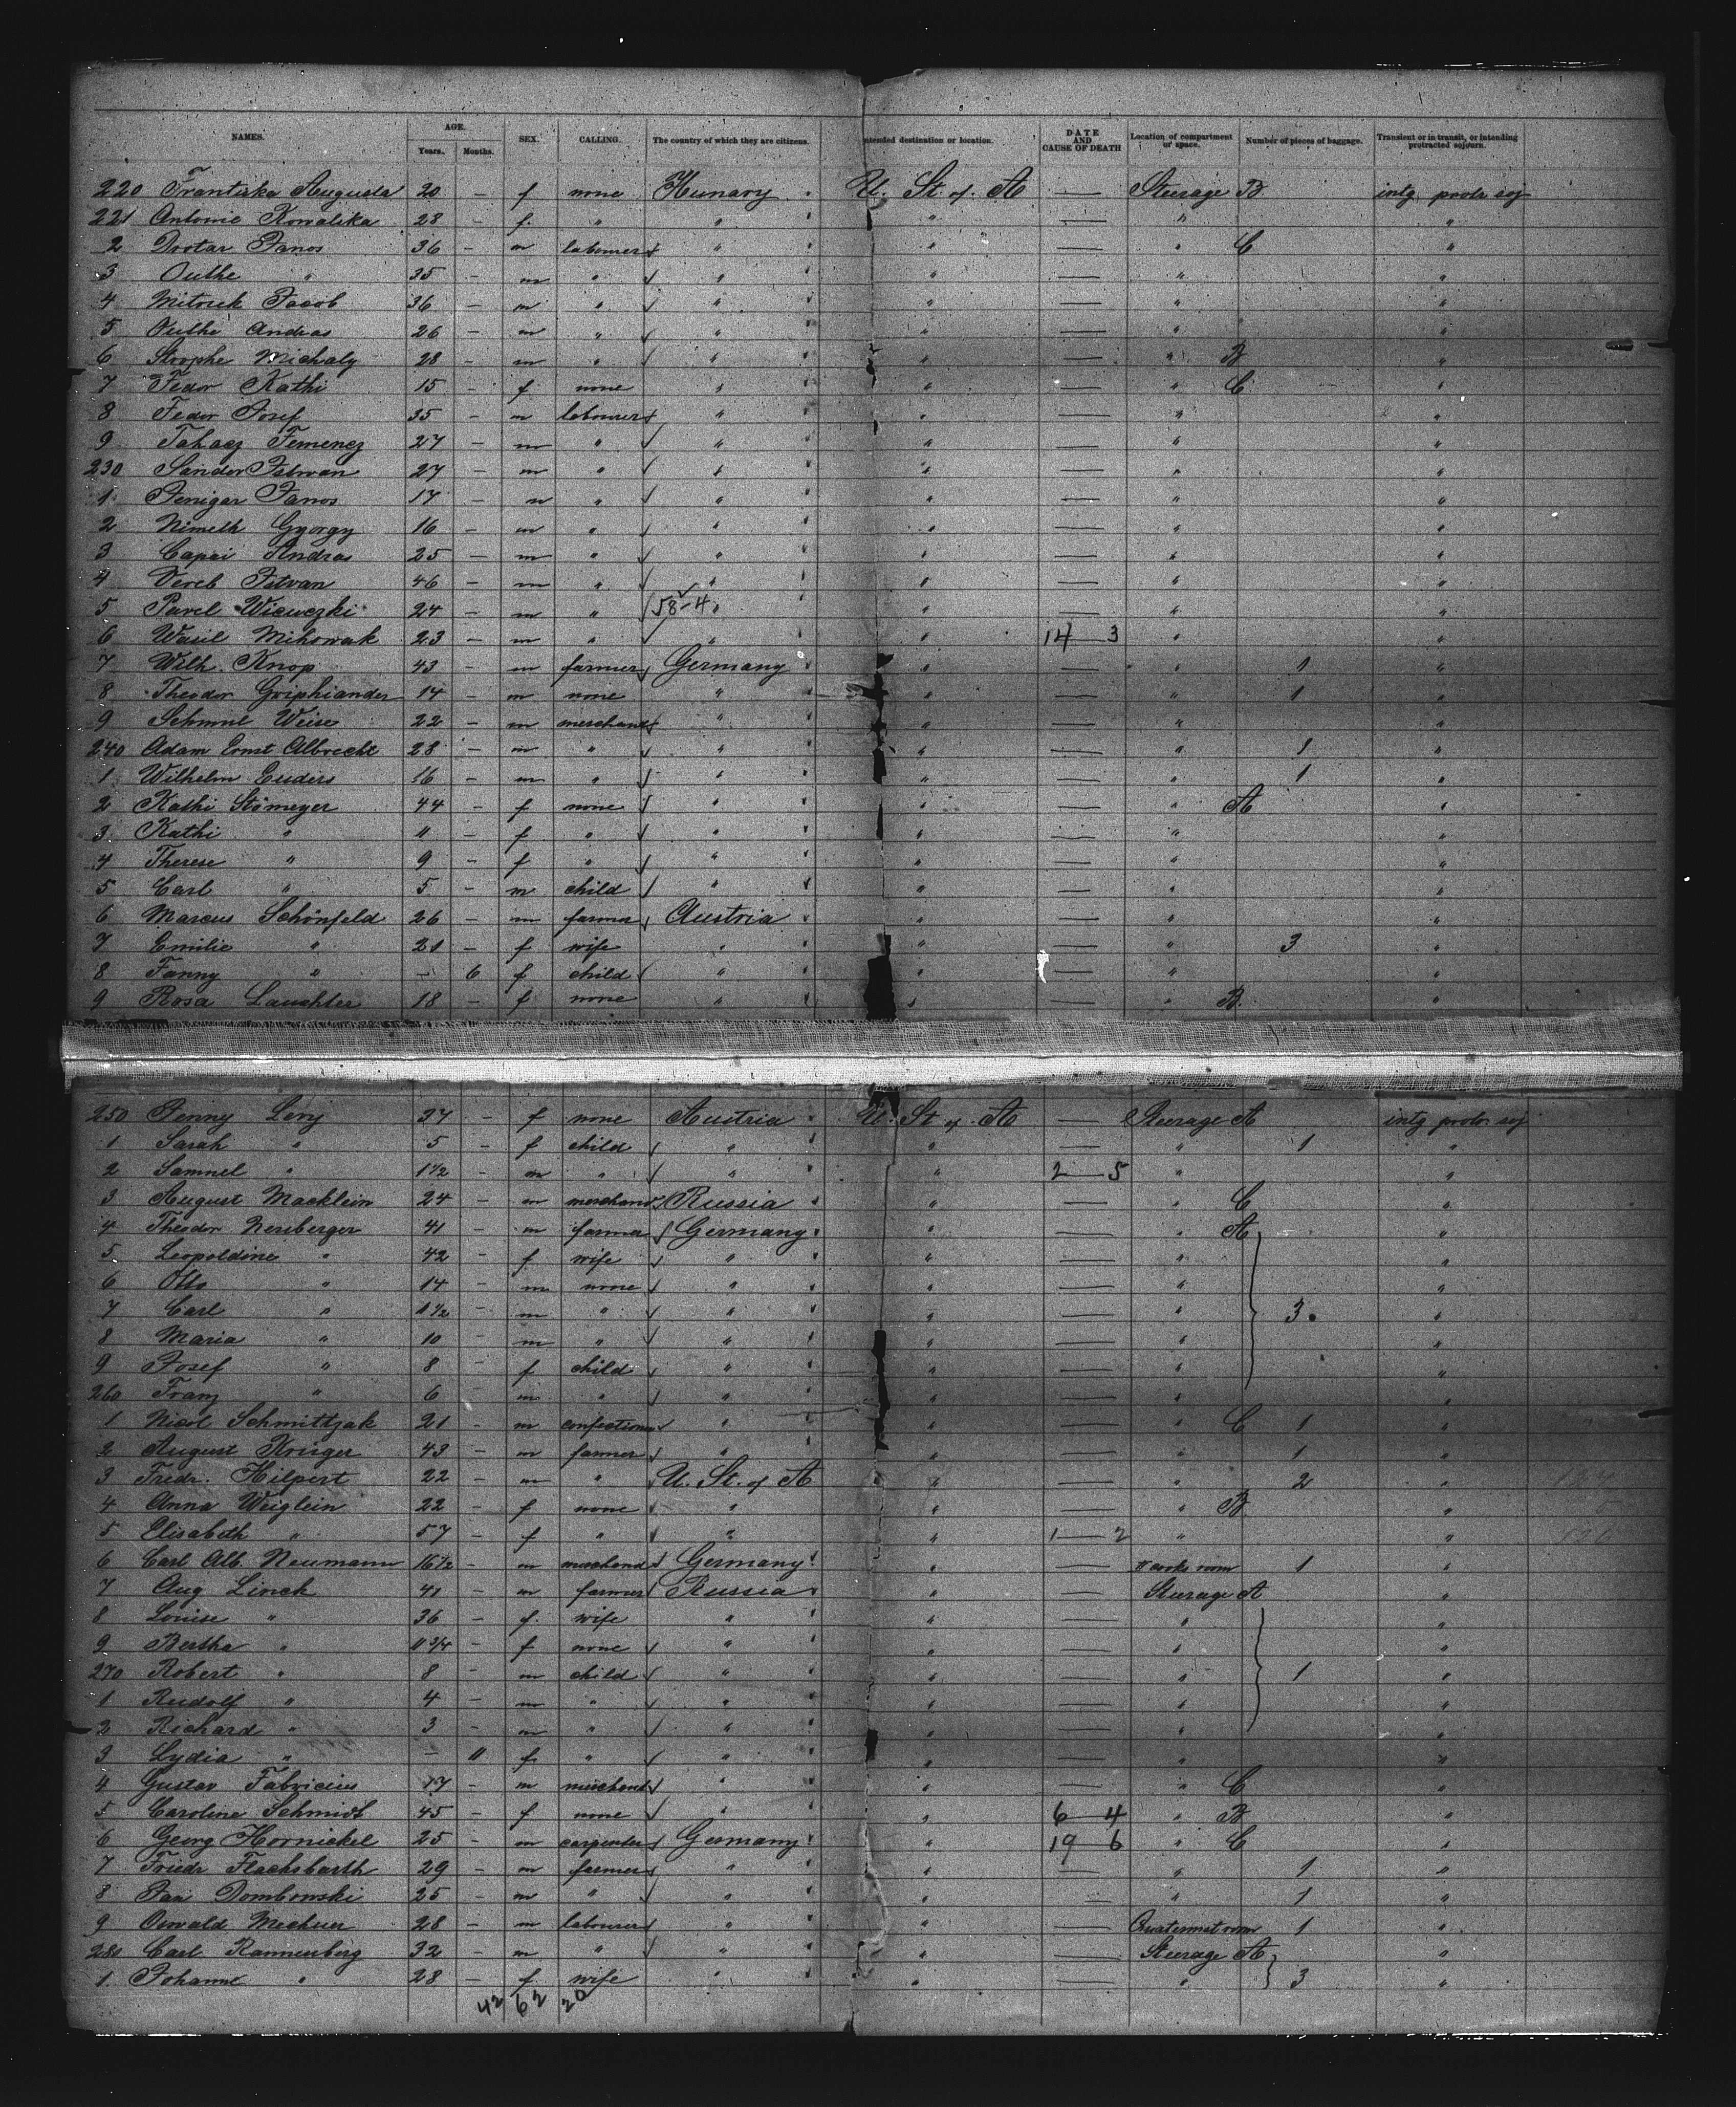 NAMES. AGE. Years. Months. SEX. CALLING. The country of which they are citizens. ntended destination or location. DATE AND CAUSE OF DEATH Location of compartment or space. Number of pieces of baggage. Transient or in transit, or intending protracted sojourn.
220 Frantiska Augusta 20 - f none Hunary U. St. of. A — Steerage B intg protr soj
221 Antonie Kowalska 28 - f. " " " — " "
2 Dootar Janos 36 - m labourer " " — " C "
3 Outhe " 35 - m " " " — " "
4 Mitruk Jacob 36 - m " " " — " "
5 Outhe Andras 26 - m " " " — " "
6 Strophe Michaly 28 - m " " " — " B "
7 Fedor Kathi 15 - f none " " — " C "
8 Fedor Josef 35 - m labourer " " — " "
9 Tahacz Femencz 27 - m " " " — " "
230 Sandor Istwan 27 - m " " " — " "
1 Penigar Janos 17 - m " " " — " "
2 Nimeth Gyorgy 16 - m " " " — " "
3 Capai Andras 25 - m " " " — " "
4 Vereb Istvan 46 - m " " " — " "
5 Pavel Wiewczki 24 - m " 58-4 " " — " "
6 Wasil Mihowak 23 - m " " " 14 — 3 " "
7 Wilh. Knop 43 - m farmer Germany " — " 1 "
8 Theodor Griphiander 14 - m none " " — " 1 "
9 Schmul Weise 22 - m merchand " " — " "
240 Adam Ernst Albrecht 28 - m " " " — " 1 "
1 Wilhelm Enders 16 - m " " " — " 1 "
2 Kathi Stömeyer 44 - f none " " — " A "
3 Kathi " 11 - f " " " — " "
4 Therese " 9 - f " " " — " "
5 Carl " 5 - m child " " — " "
6 Marcus Schönfeld 26 - m farmer Austria " — " "
7 Emilie " 21 - f wife " " — " 3 "
8 Fanny " - 6 f child " " — " "
9 Rosa Lauchter 18 - f none " " — " B. "
250 Penny Levy 37 - f none Austria U. St of. A — Steerage A intg protr soj
1 Sarah " 5 - f child " " — " 1 "
2 Samuel " 1 1/2 m " " " 2 — 5 " "
3 August Macklein 24 - m merchand Russia " — " C "
4 Theodor Neuberger 41 - m farmer Germany " — " A "
5 Leopoldine " 42 - f wife " " — " "
6 Otto " 14 - m none " " — " "
7 Carl " 11 1/2 - m " " " — " 3. "
8 Maria " 10 - m " " " — " "
9 Josef " 8 - f child " " — " "
260 Franz " 6 - m " " " — " "
1 Nicol Schmittzak 21 - m confectioner " " — " C 1 "
2 August Krüger 43 - m farmer " " — " 1 "
3 Fredr. Hilpert 22 - m " U. St. of A " — " 2 "
4 Anna Weiglein 22 - f none " " — " B "
5 Elisabeth " 57 - f " " " 1 — 2 " "
6 Carl Alb. Neumann 16 1/2 - m merchand Germany " — II cooks room 1 "
7 Aug Linck 41 - m farmer Russia " — Steerage A
8 Louise " 36 - f. wife " " — " "
9 Bertha " 11 3/4 - f none " " — " "
270 Robert " 8 - m child " " — " 1 "
1 Rudolf " 4 - m " " " — " "
2 Richard " 3 - m " " " — " "
3 Lydia " - 11 f " " " — " "
4 Gustav Fabricius 17 - m merchand " " — " C "
5 Caroline Schmidt 45 - f none " " 6 — 4 " B "
6 Georg Hornickel 25 - m carpenter Germany " 19 — 6 " C "
7 Friedr Flachsbarth 29 - m farmer " " — " 1 "
8 Jan Dombowski 25 - m " " " — " 1 "
9 Oswald Mechner 28 - m labourer " " — Quatermst room 1 "
280 Carl Rannenberg 32 - m " " " — Steerage A "
1. Johanne " 28 - f wife " " — " 3 "
42 62 20